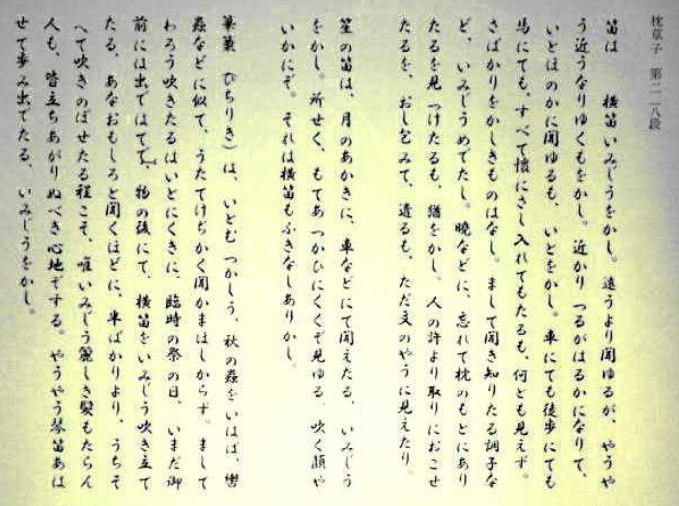 枕草子 第二一八段
笛は 横笛いみじうをかし。遠うより聞ゆるが、やうや
う近うなりゆくもをかし。近かりつるがはるかになりて、
いとほのかに聞ゆるも、いとをかし。車にても徒歩にても
馬にても、すべて懐にさし入れてもたるも、何とも見えず。
さばかりをかしきものはなし。まして聞き知りたる調子な
ど、いみじうめでたし。暁などに、忘れて枕のもとにあり
たるを見つけたるも、猶をかし。人の許より取りにおこせ
たるを、おし包みて、遣るも、ただ文のやうに見えたり。
笙の笛は、月のあかきに、車などにて聞えたる、いみじう
をかし。所せく、もてあつかひにくくぞ見ゆる、吹く顔や
いかにぞ。それは横笛もふきなしありかし。
篳篥(ひちりき)は、いとむつかしう、秋の蟲をいはば、轡
蟲などに似て、うたてけぢかく聞かまほしからず。まして
わろう吹きたるはいとにくきに、臨時の祭の日、いまだ御
前には出ではてで、物の後にて、横笛をいみじう吹き立て
たる、あなおもしろと聞くほどに、半ばかりより、うちそ
へて吹きのぼせたる程こそ、唯いみじう麗しき髪もたらん
人も、皆立ちあがりぬべき心地ぞする。やうやう琴笛あは
せて歩み出でたる、いみじうをかし。